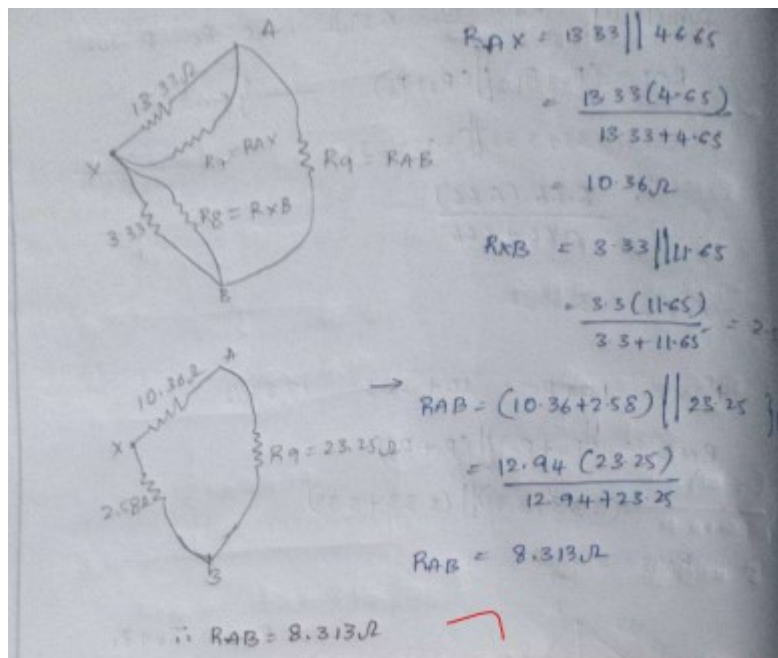 A
13.33Ω
R7 = RAX
X
R9 = RAB
R8 = RXB
3.33
B
RAX = 13.33 || 46.65
= 13.33 (4.65)
13.33+4.65
10.36Ω
RXB = 3.33 || 11.65
= 3.3 (11.65)
3.3 + 11.65
= 2.
A
10.36Ω
X
R9 = 23.25Ω
2.58Ω
B
→ RAB = (10.36+2.58) || 23.25
= 12.94 (23.25)
12.94+23.25
RAB = 8.313Ω
∴ RAB = 8.313Ω